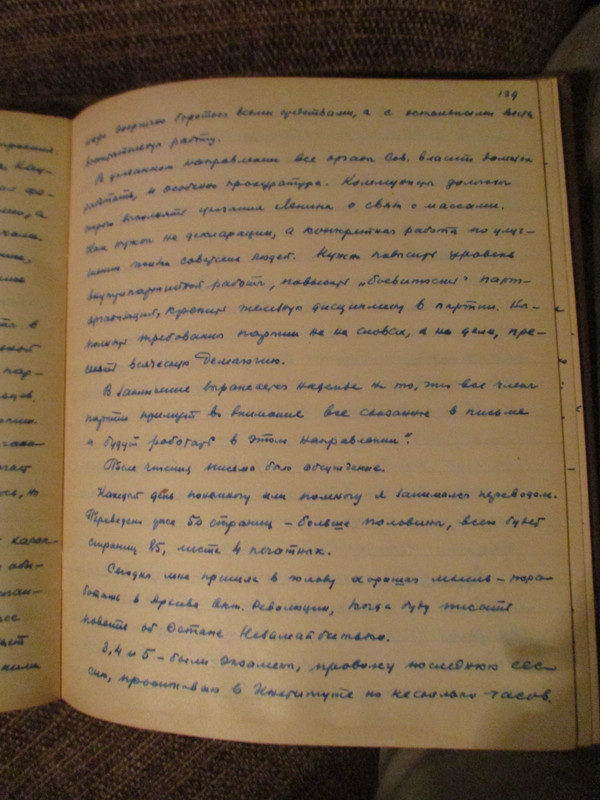 139
надо энергично бороться всеми средствами, а с остальными вести
воспитательную работу.
В указанном направлении все органы Сов. власти должны
работать, и особенно прокуратура. Коммунисты должны
выполнять указания Ленина о связи с массами.
Нам нужны не декларации, а конкретная работа по улуч-
шению жизни советских людей. Нужно повысить уровень
внутрипартийной работы, повысить „боевитость" парт-
организаций, железную дисциплину в партии. Вы-
полнять требования партии не на словах, а на деле, пре-
секать всяческую демагогию.
В заключение выражается надежда на то, что все члены
партии примут во внимание все сказанное в письме
и будут работать в этом направлении".
После чтения письма было обсуждение.
Каждый день понемногу или помногу я занимался переводом.
Переведено уже 50 страниц – больше половины, всего будет
страниц 85, листа 4 печатных.
Сегодня мне пришла в голову хорошая мысль – пора-
ботать в Архиве Окт. Революции, когда буду писать
повесть об Остапе
3, 4 и 5 – были экзамены, провожу последнюю сес-
сию, просиживаю в Институте по несколько часов.